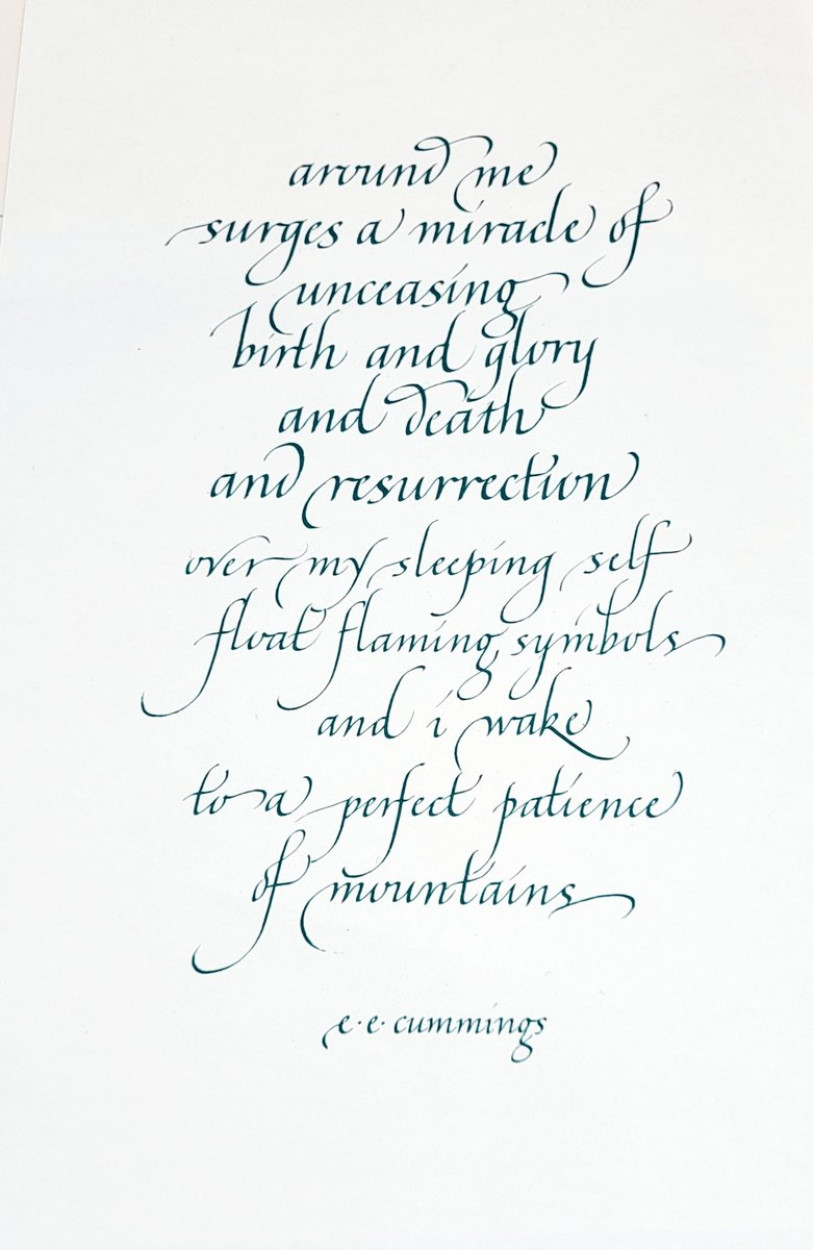 around me
surges a miracle of
unceasing
birth and glory
and death
and resurrection
over my sleeping self
float flaming symbols
and i wake
to a perfect patience
of mountains
e·e·cummings